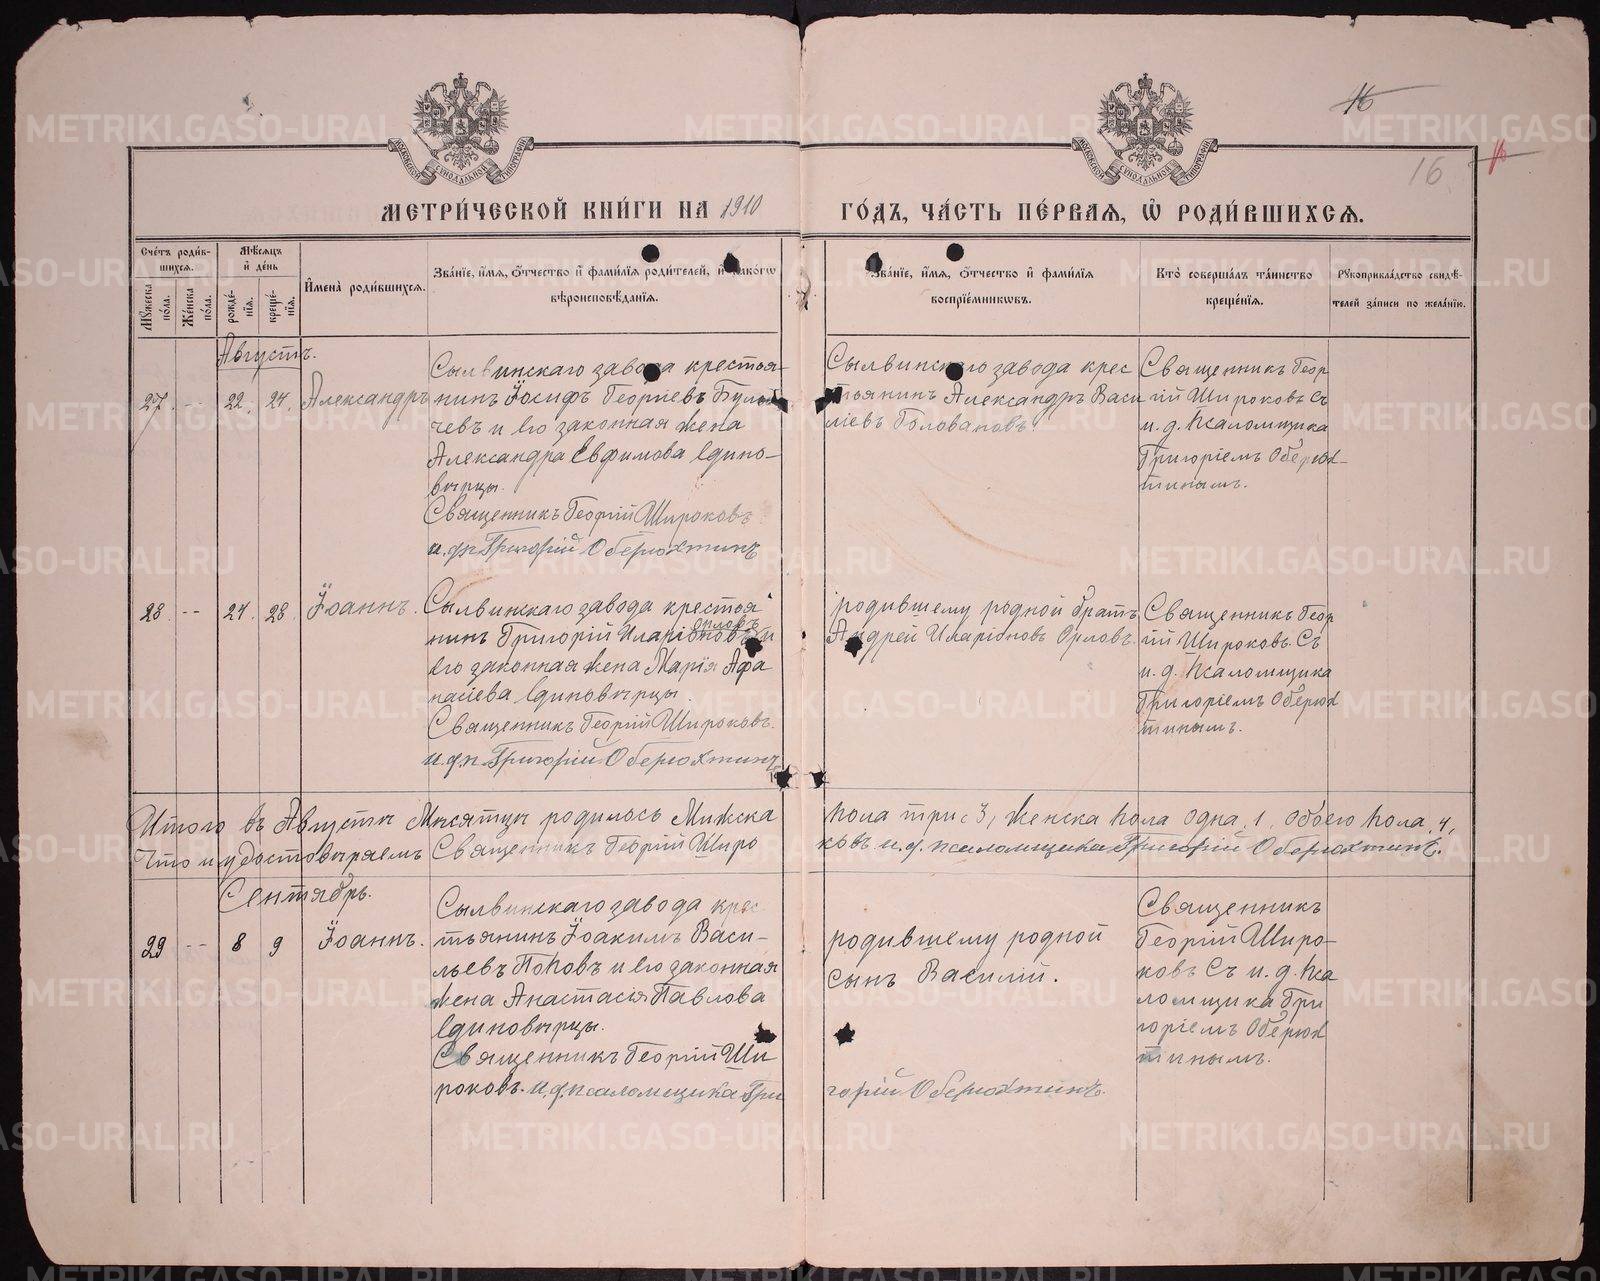 16
16
МЕТРИ́ЧЕСКОЙ КНИ́ГИ НА 1910
ГО́ДЪ, ЧА́СТЬ ПЕ́РВАЯ, Ѡ РОДИ́ВШИХСЯ.
Сче́тъ роди́в-
шихся.
Мѣ́сяцъ
и де́нь
Мꙋ́жеска
по́ла.
Же́нска
по́ла.
рожде́-
нїя.
креще́-
нїя.
И҆мена̀ роди́вшихся.
Зва́нїе, и҆́мя, ѻ҆́тчество и҆ фами́лїя роди́телей, и҆ како́гѡ
вѣроисповѣ́данїя.
Зва́нїе, и҆́мя, ѻ҆́тчество и҆ фами́лїя
воспрїе́мникѡвъ.
Кто̀ соверша́лъ та́инство
креще́нїя.
Рꙋкоприкла́дство свидѣ́-
телей за́писи по жела́нїю.
Августъ.
27. -- 22. 24. Александръ
Сылвинскаго завода крестья-
нинъ Іосифъ Георгіевъ Булы
чевъ и его законная жена
Александра Евфимова едино-
вѣрцы.
Священникъ Георгій Широковъ
и.д.п Григорій Оберюхтинъ
Сылвинскаго завода крес
тьянинъ Александръ Васи
ліевъ Головановъ.
Священникъ Геор
гій Широковъ Съ
и. д. Псаломщика
Григоріемъ Оберюх-
тинымъ.
28. -- 24. 28. Іоаннъ.
Сылвинскаго завода крестья
нинъ Григорій Иларіоновъ Орловъ и
его законная жена Марія Афа
насіева единовѣрцы.
Священникъ Георгій Широковъ.
и.д.п Григорій Оберюхтинъ
родившему родной братъ
Андрей Иларіоновъ Орловъ.
Священникъ Геор
гій Широковъ. Съ
и. д. Псаломщика
Григоріемъ Оберюх
тинымъ.
Итого въ Августѣ Мѣсяцѣ родилось Мужска
пола три 3, женска пола одна, 1, обоего пола, 4,
Что и удостовѣряемъ Священникъ Георгій Широ
ковъ и.д. псаломщика Григорій Оберюхтинъ.
Сентябрь.
29 -- 8 9 Іоаннъ.
Сылвинскаго завода крес
тьянинъ Іоакимъ Васи-
льевъ Поповъ и его законная
жена Анастасія Павлова
единовѣрцы.
Священникъ Георгій Ши
роковъ. и.д.псаломщика Гри
родившему родной
сынъ Василій.
горій Оберюхтинъ.
Священникъ
Георгій Широ-
ковъ Съ и. д. Пса
ломщика Гри
горіемъ Оберюх
тинымъ.